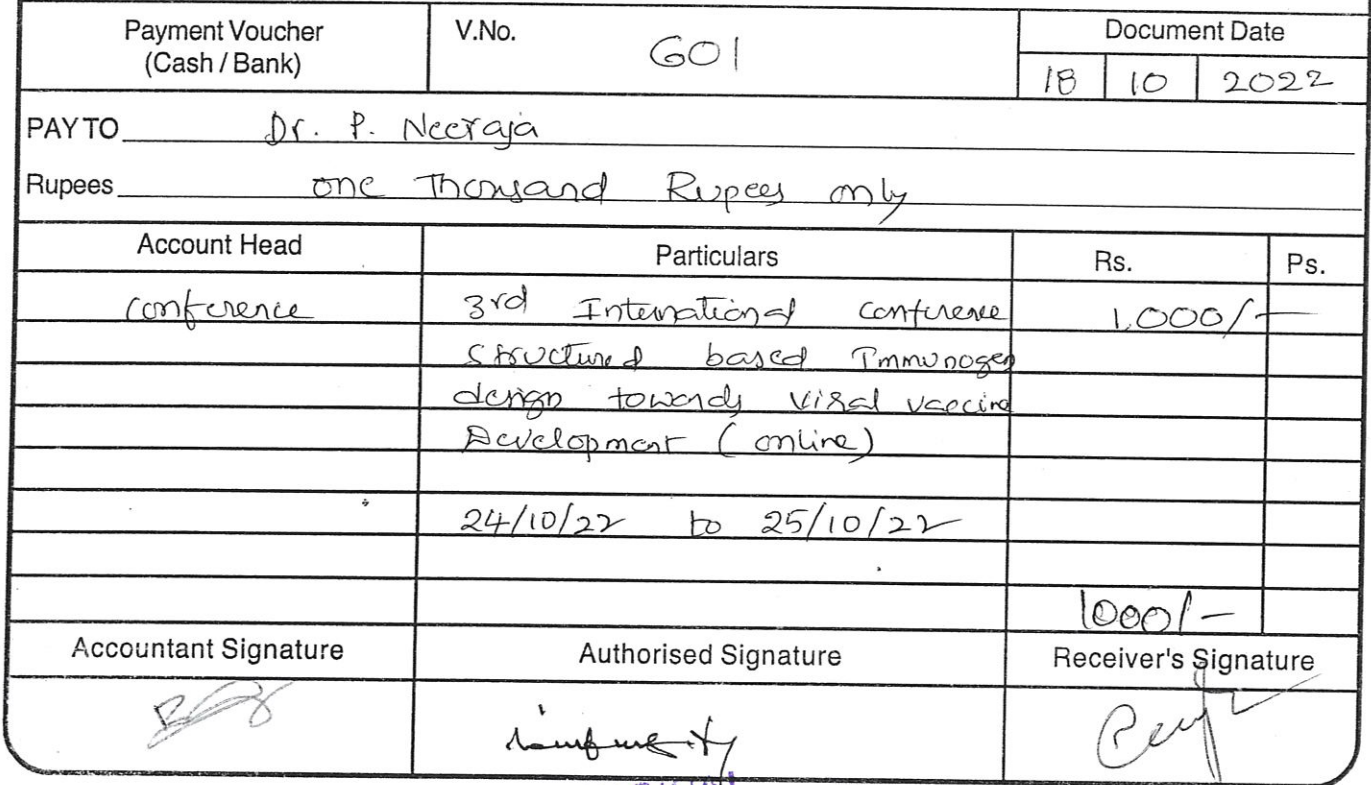 Payment Voucher
(Cash / Bank)
V.No. 601
Document Date
18 10 2022
PAY TO Dr. P. Neeraja
Rupees one Thousand Rupees only
Account Head Particulars Rs. Ps.
conference 3rd International conference 1,000/-
Structured based Immunogen
design towards viral vaccine
Development (online)
24/10/22 to 25/10/22
1000/-
Accountant Signature Authorised Signature Receiver's Signature